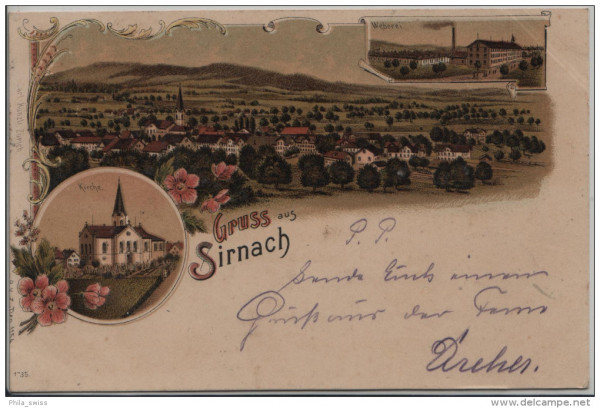 Weberei.
Kirche.
Gruss aus
Sirnach
P. P.
Sende Euch einen
Gruß aus der Ferne
1735
Phila_swiss
delcampe.net